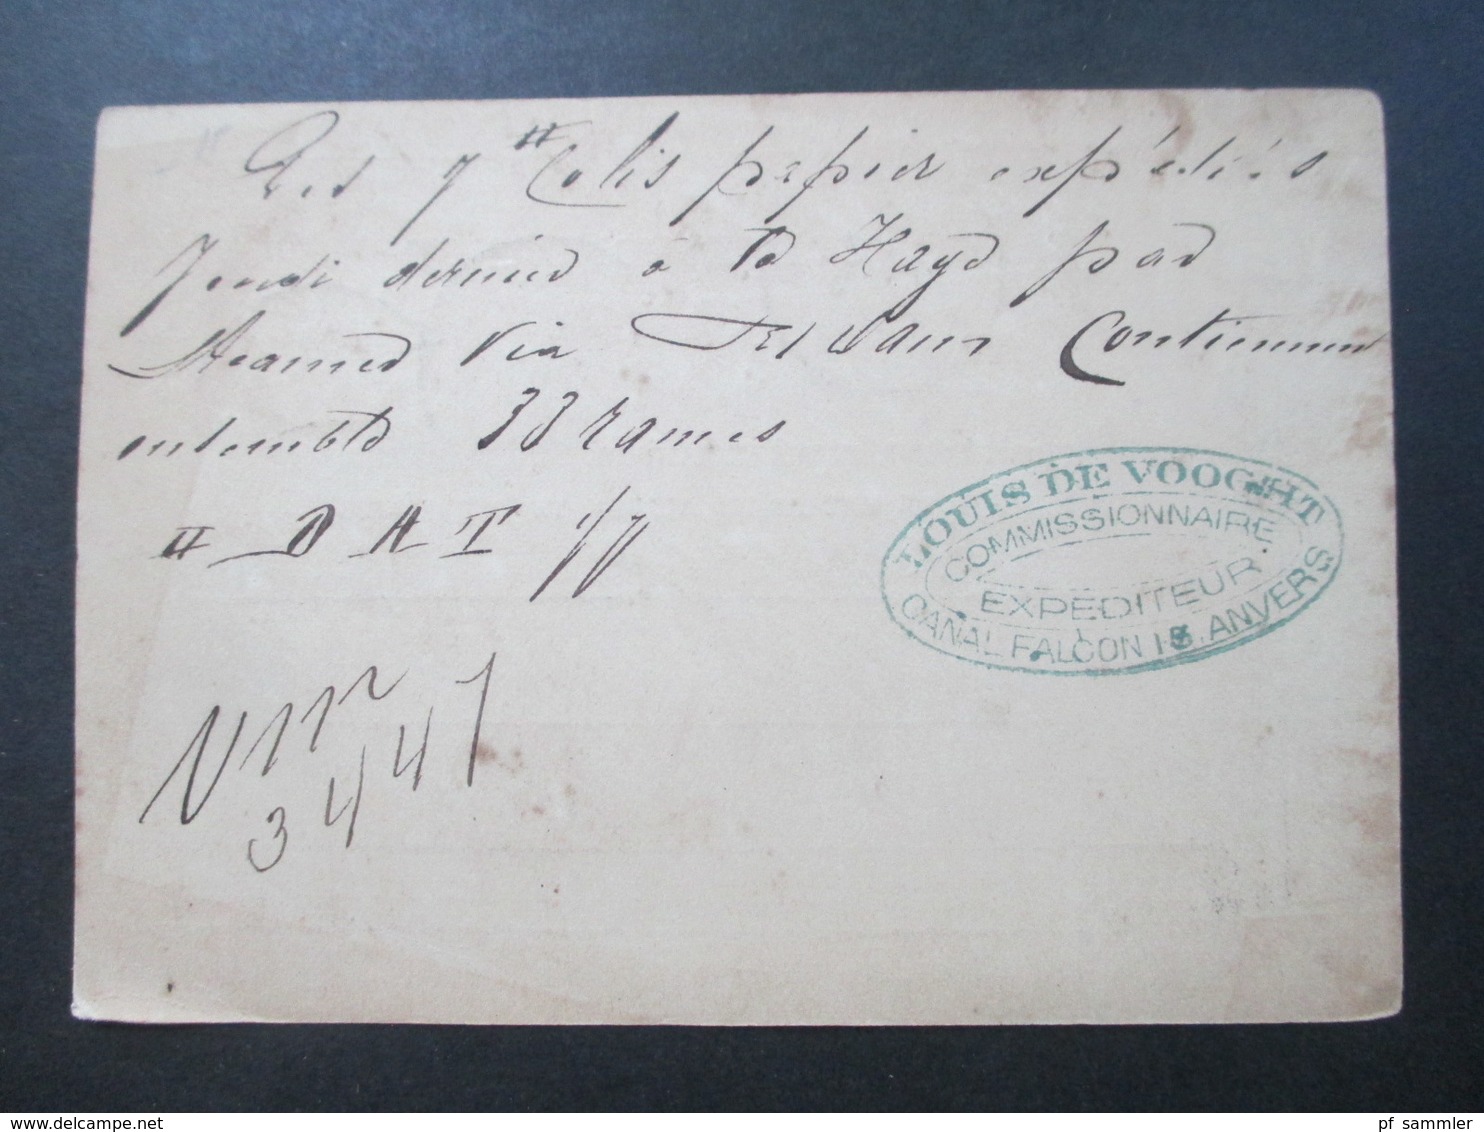 Les 7 Colis papier expédiés
Jeudi dernier à la Haye par
Steamer via Contiennent
ensemble 33 rames
D A T 1/7
3441
LOUIS DE VOOGHT
COMMISSIONNAIRE
EXPÉDITEUR
CANAL FALCON 13. ANVERS
pf_sammler